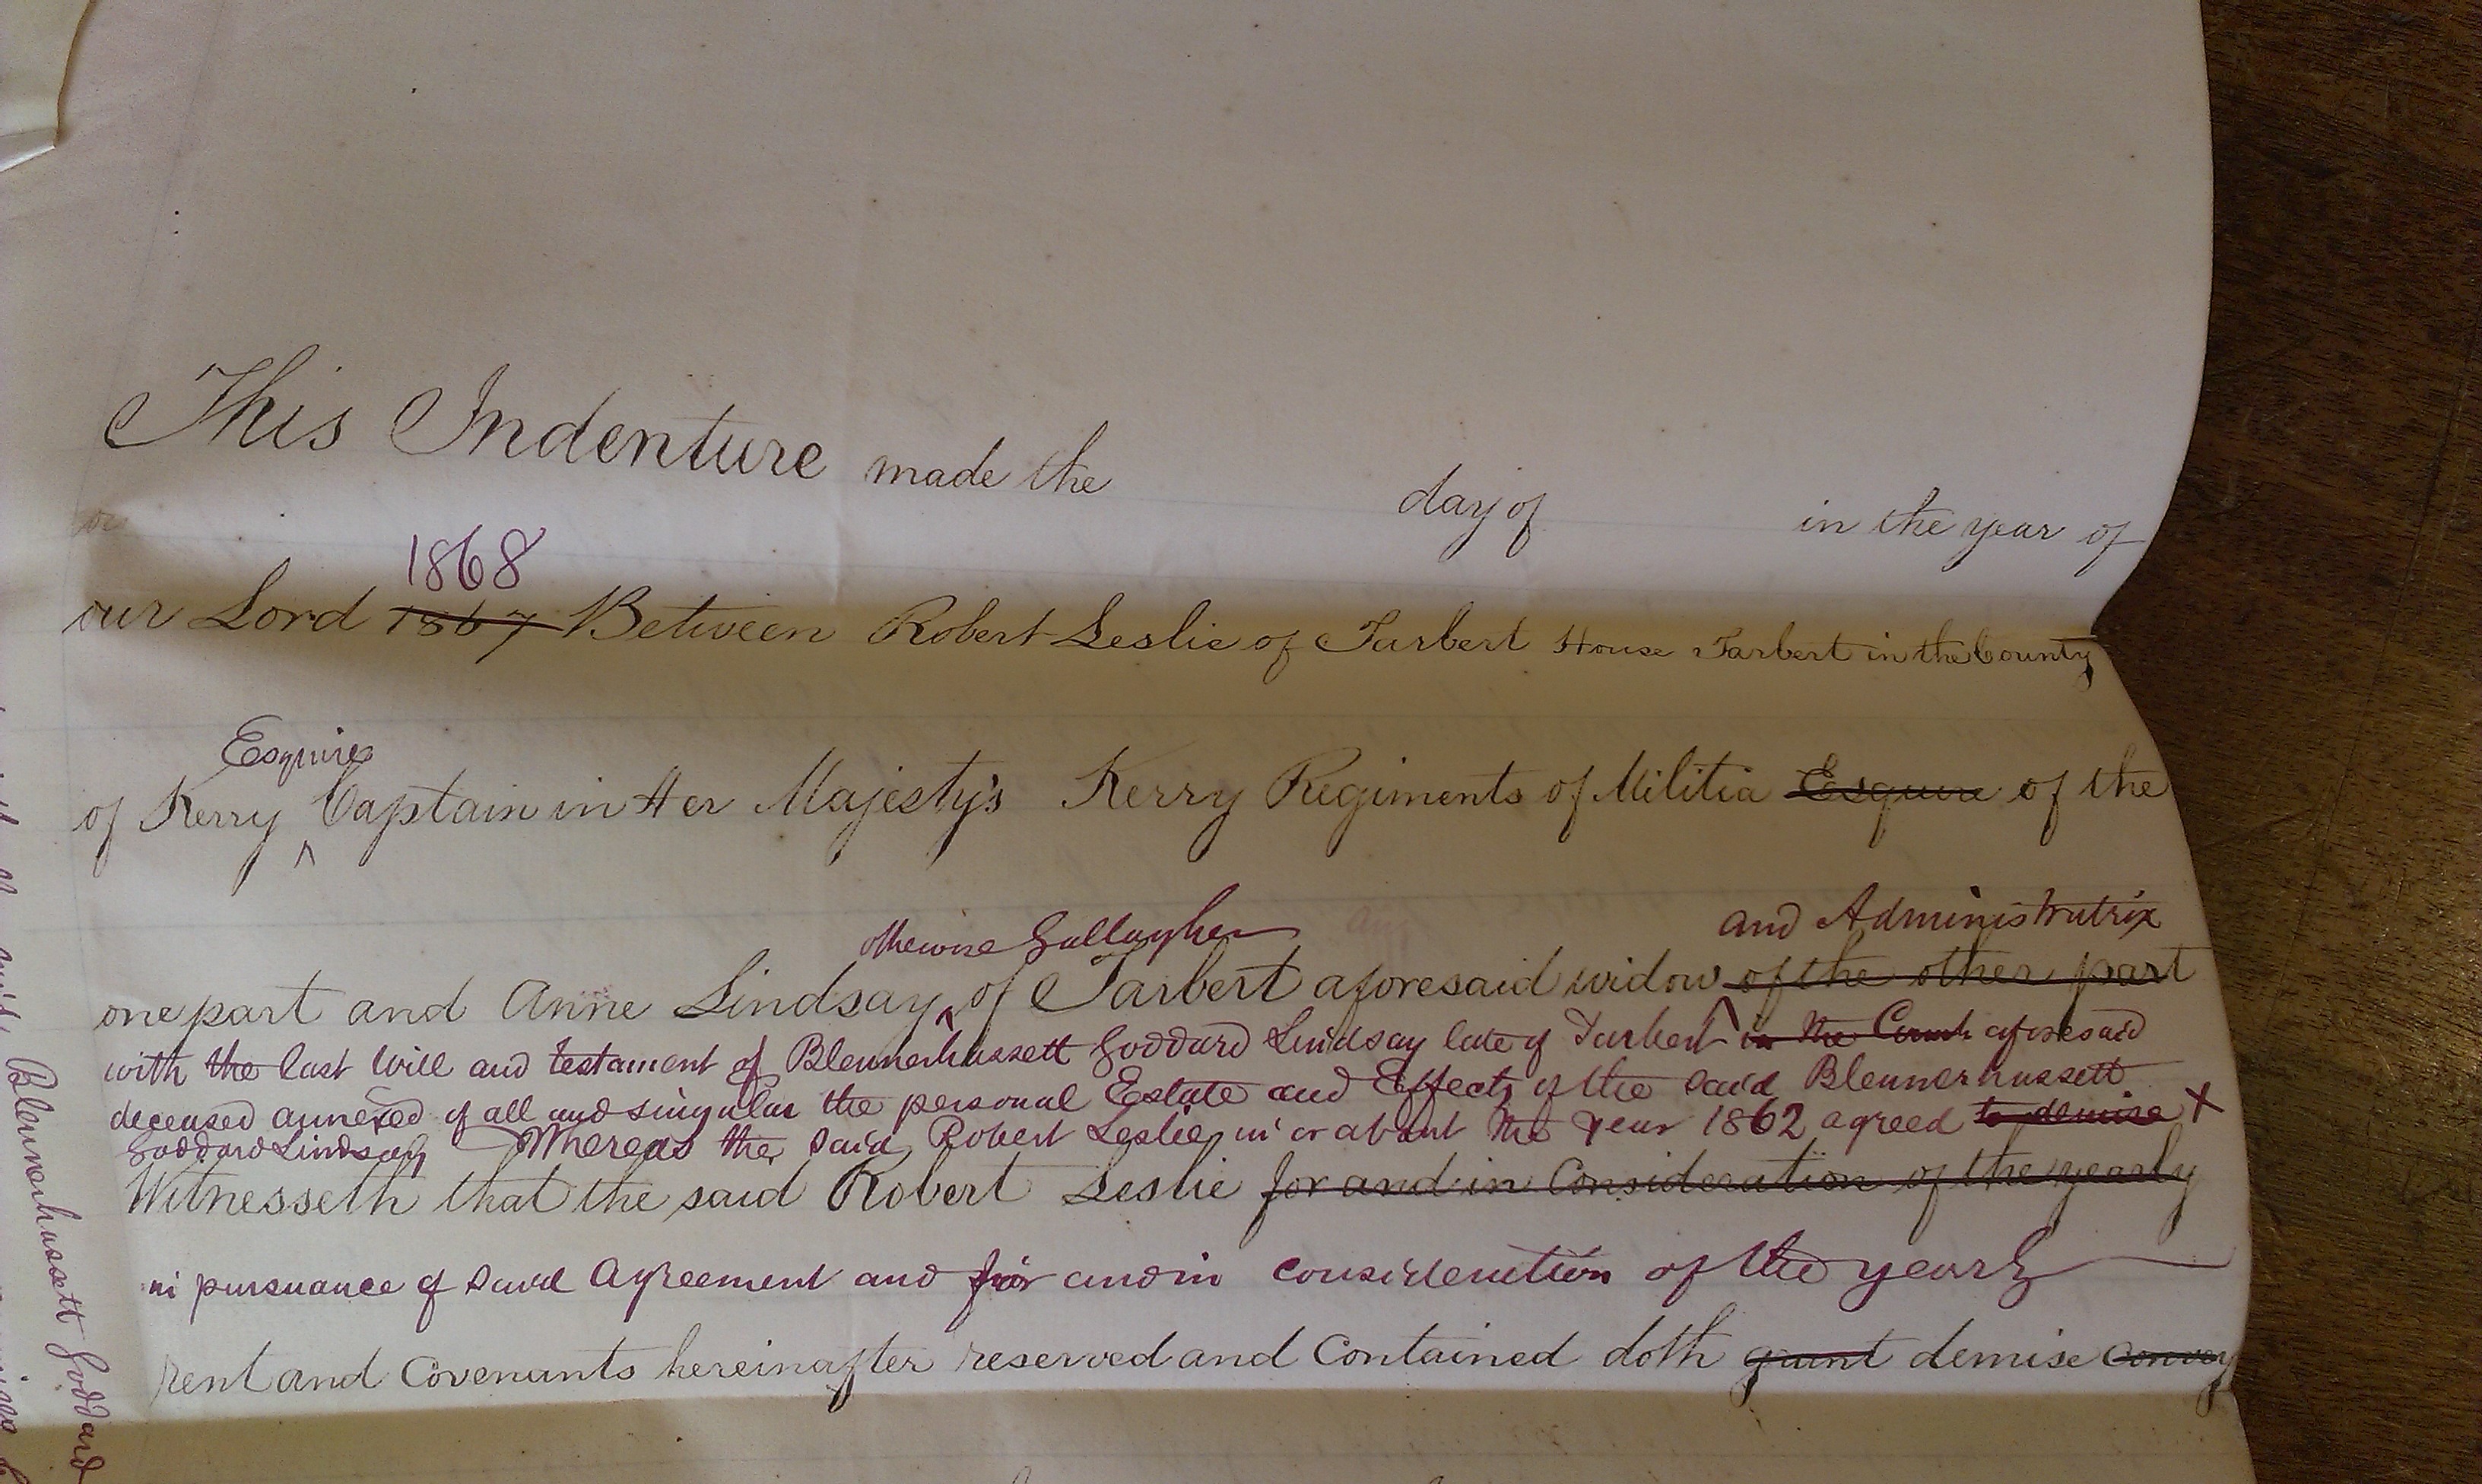 This Indenture made the day of in the year of
1868
our Lord 1867 Between Robert Leslie of Tarbert House Tarbert in the County
Esquire
of Kerry ^ Captain in Her Majesty's Kerry Regiments of Militia Esquire of the
otherwise Gallagher and Administratrix
one part and Anne Lindsay ^ of Tarbert aforesaid widow ^ of the other part
with the last Will and testament of Blennerhassett Goddard Lindsay late of Tarbert in the aforesaid
deceased annexed of all and singular the personal Estate and Effects of the said Blennerhassett
Goddard Lindsay Whereas the said Robert Leslie in or about the year 1862 agreed to demise X
Witnesseth that the said Robert Leslie for and in Consideration of the yearly
in pursuance of said Agreement and for and in consideration of the yearly
rent and Covenants hereinafter reserved and Contained doth grant demise convey
Blennerhassett Goddard